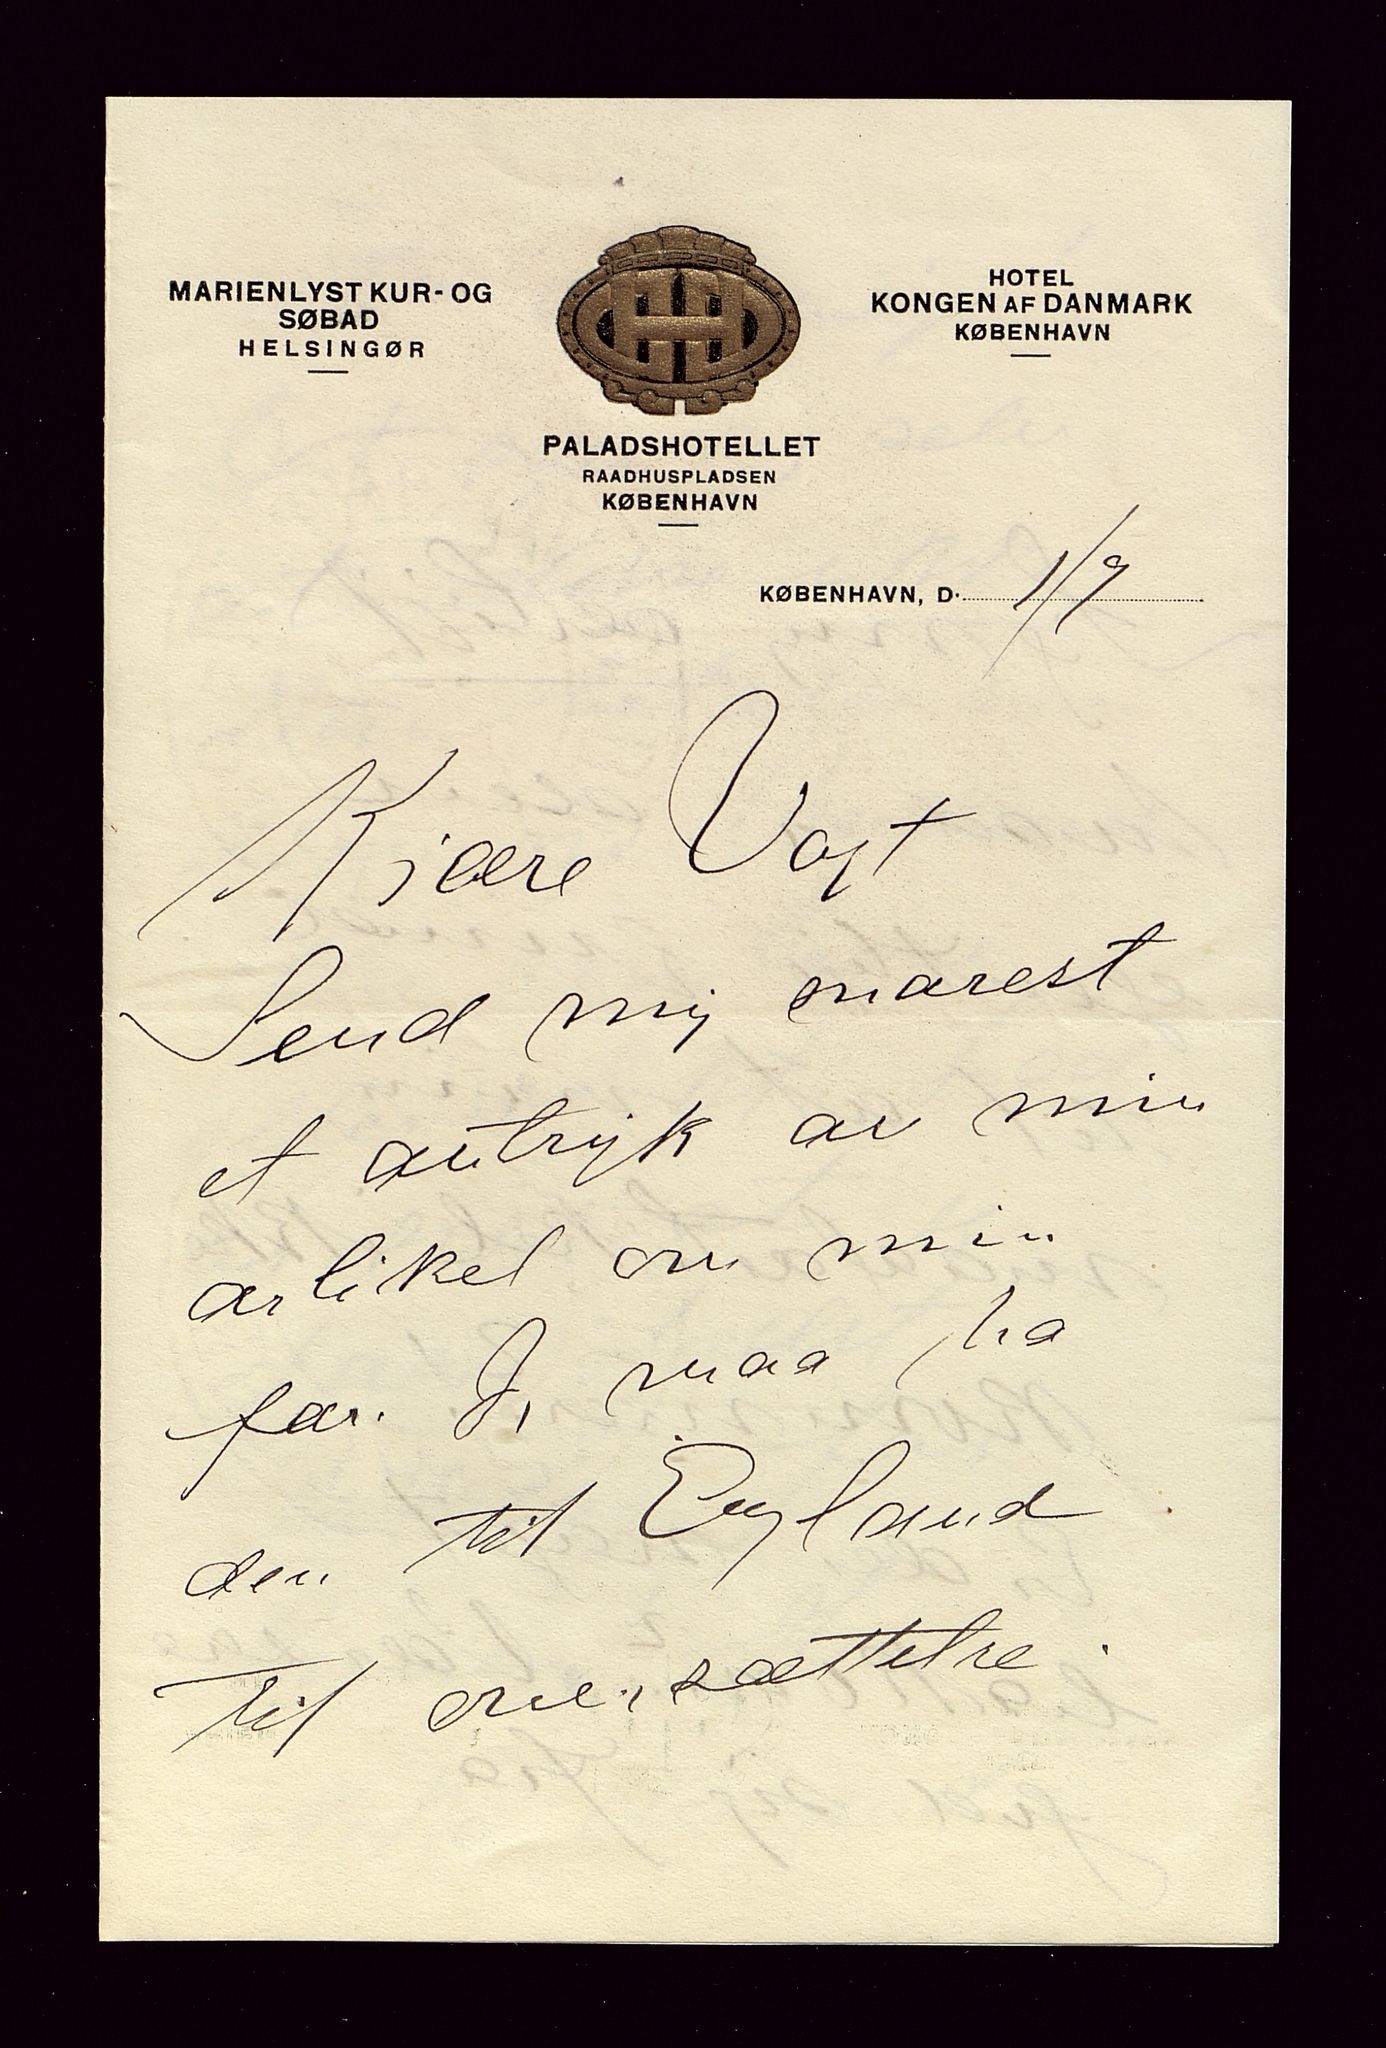 MARIENLYST KUR- OG
SØBAD
HELSINGØR
HOTEL
KONGEN AF DANMARK
KØBENHAVN
PALADSHOTELLET
RAADHUSPLADSEN
KØBENHAVN
KØBENHAVN, D. 1/7
Kjære Vogt
Send mig snarest
et avtryk av min
artikel om min
far. J, maa ha
den til England
til oversættelse.